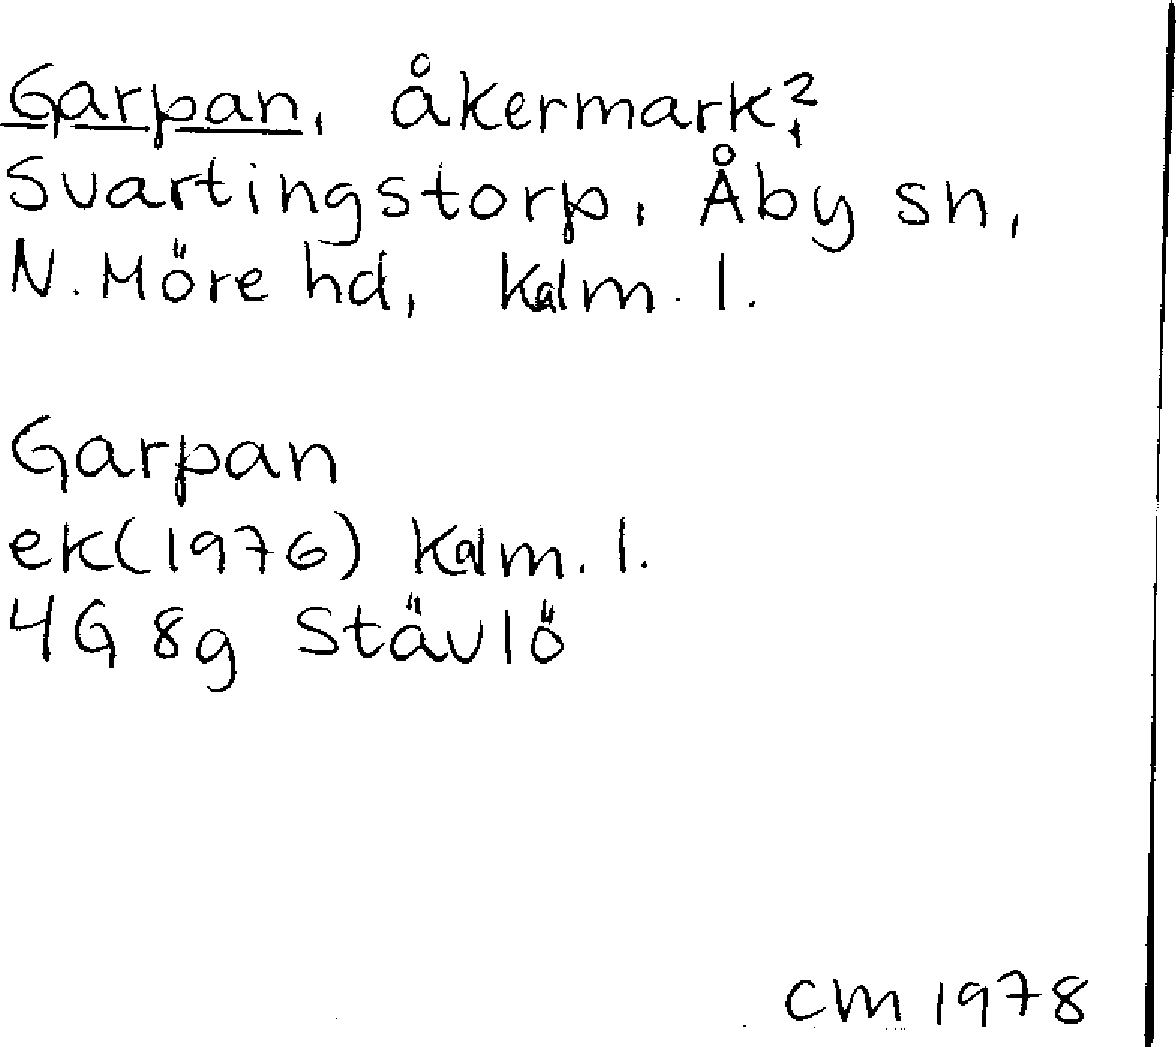 Garpan, åkermark?,
Svartingstorp, Åby sn,
N. Möre hd, Kalm. l.
Garpan
ek(1976) Kalm. l.
4G 8g Stävlö
CM 1978